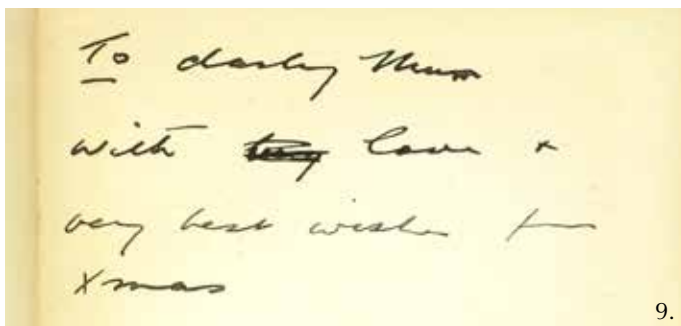 To darling Mum
with love +
very best wishes for
Xmas
9.